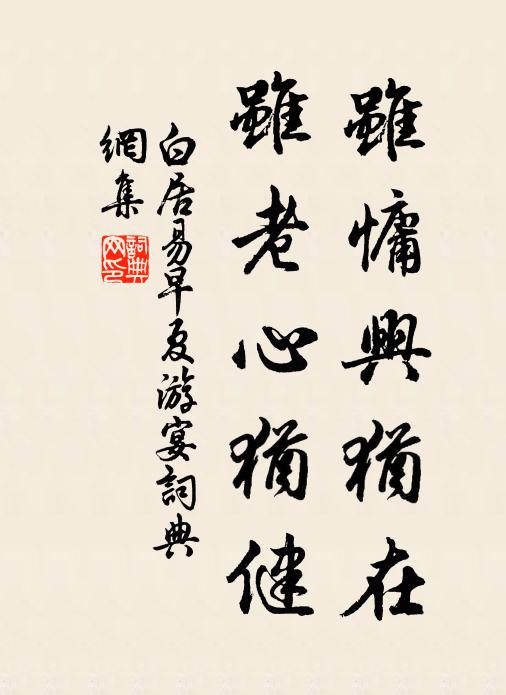 雖慵興猶在
雖老心猶健
白居易早夏游宴詞典
網集
詞典
网印